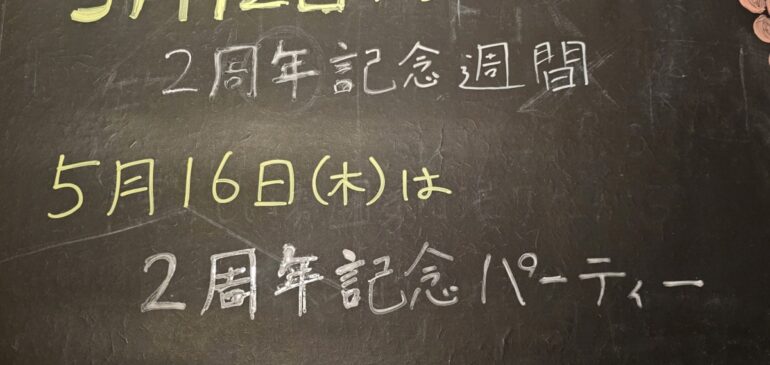 5月12日
2周年記念週間
5月16日(木)は
2周年記念パーティー